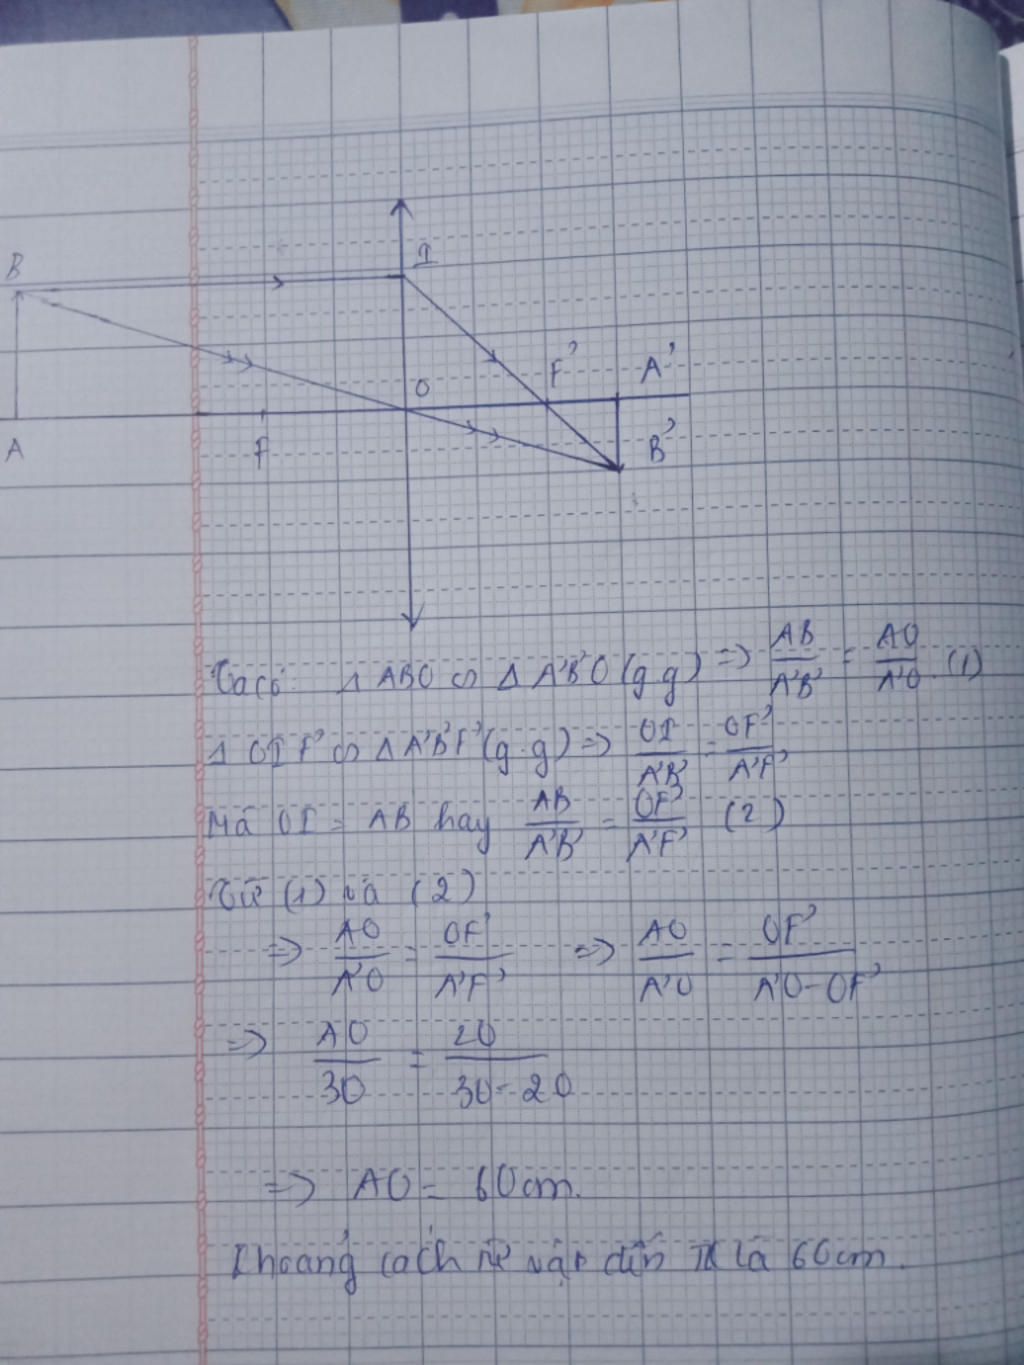 B
I
F'
A'
O
A
F
B'
Ta có: Δ ABO ∽ Δ A'B'O (g.g) => AB/A'B' = AO/A'O (1)
Δ OIF' ∽ Δ A'B'F' (g.g) => OI/A'B' = OF'/A'F'
Mà OI = AB hay AB/A'B' = OF'/A'F' (2)
Từ (1) và (2)
=> AO/A'O = OF'/A'F' => AO/A'O = OF'/A'O-OF'
=> AO/30 = 20/30-20
=> AO = 60cm.
Khoảng cách từ vật đến TK là 60cm.